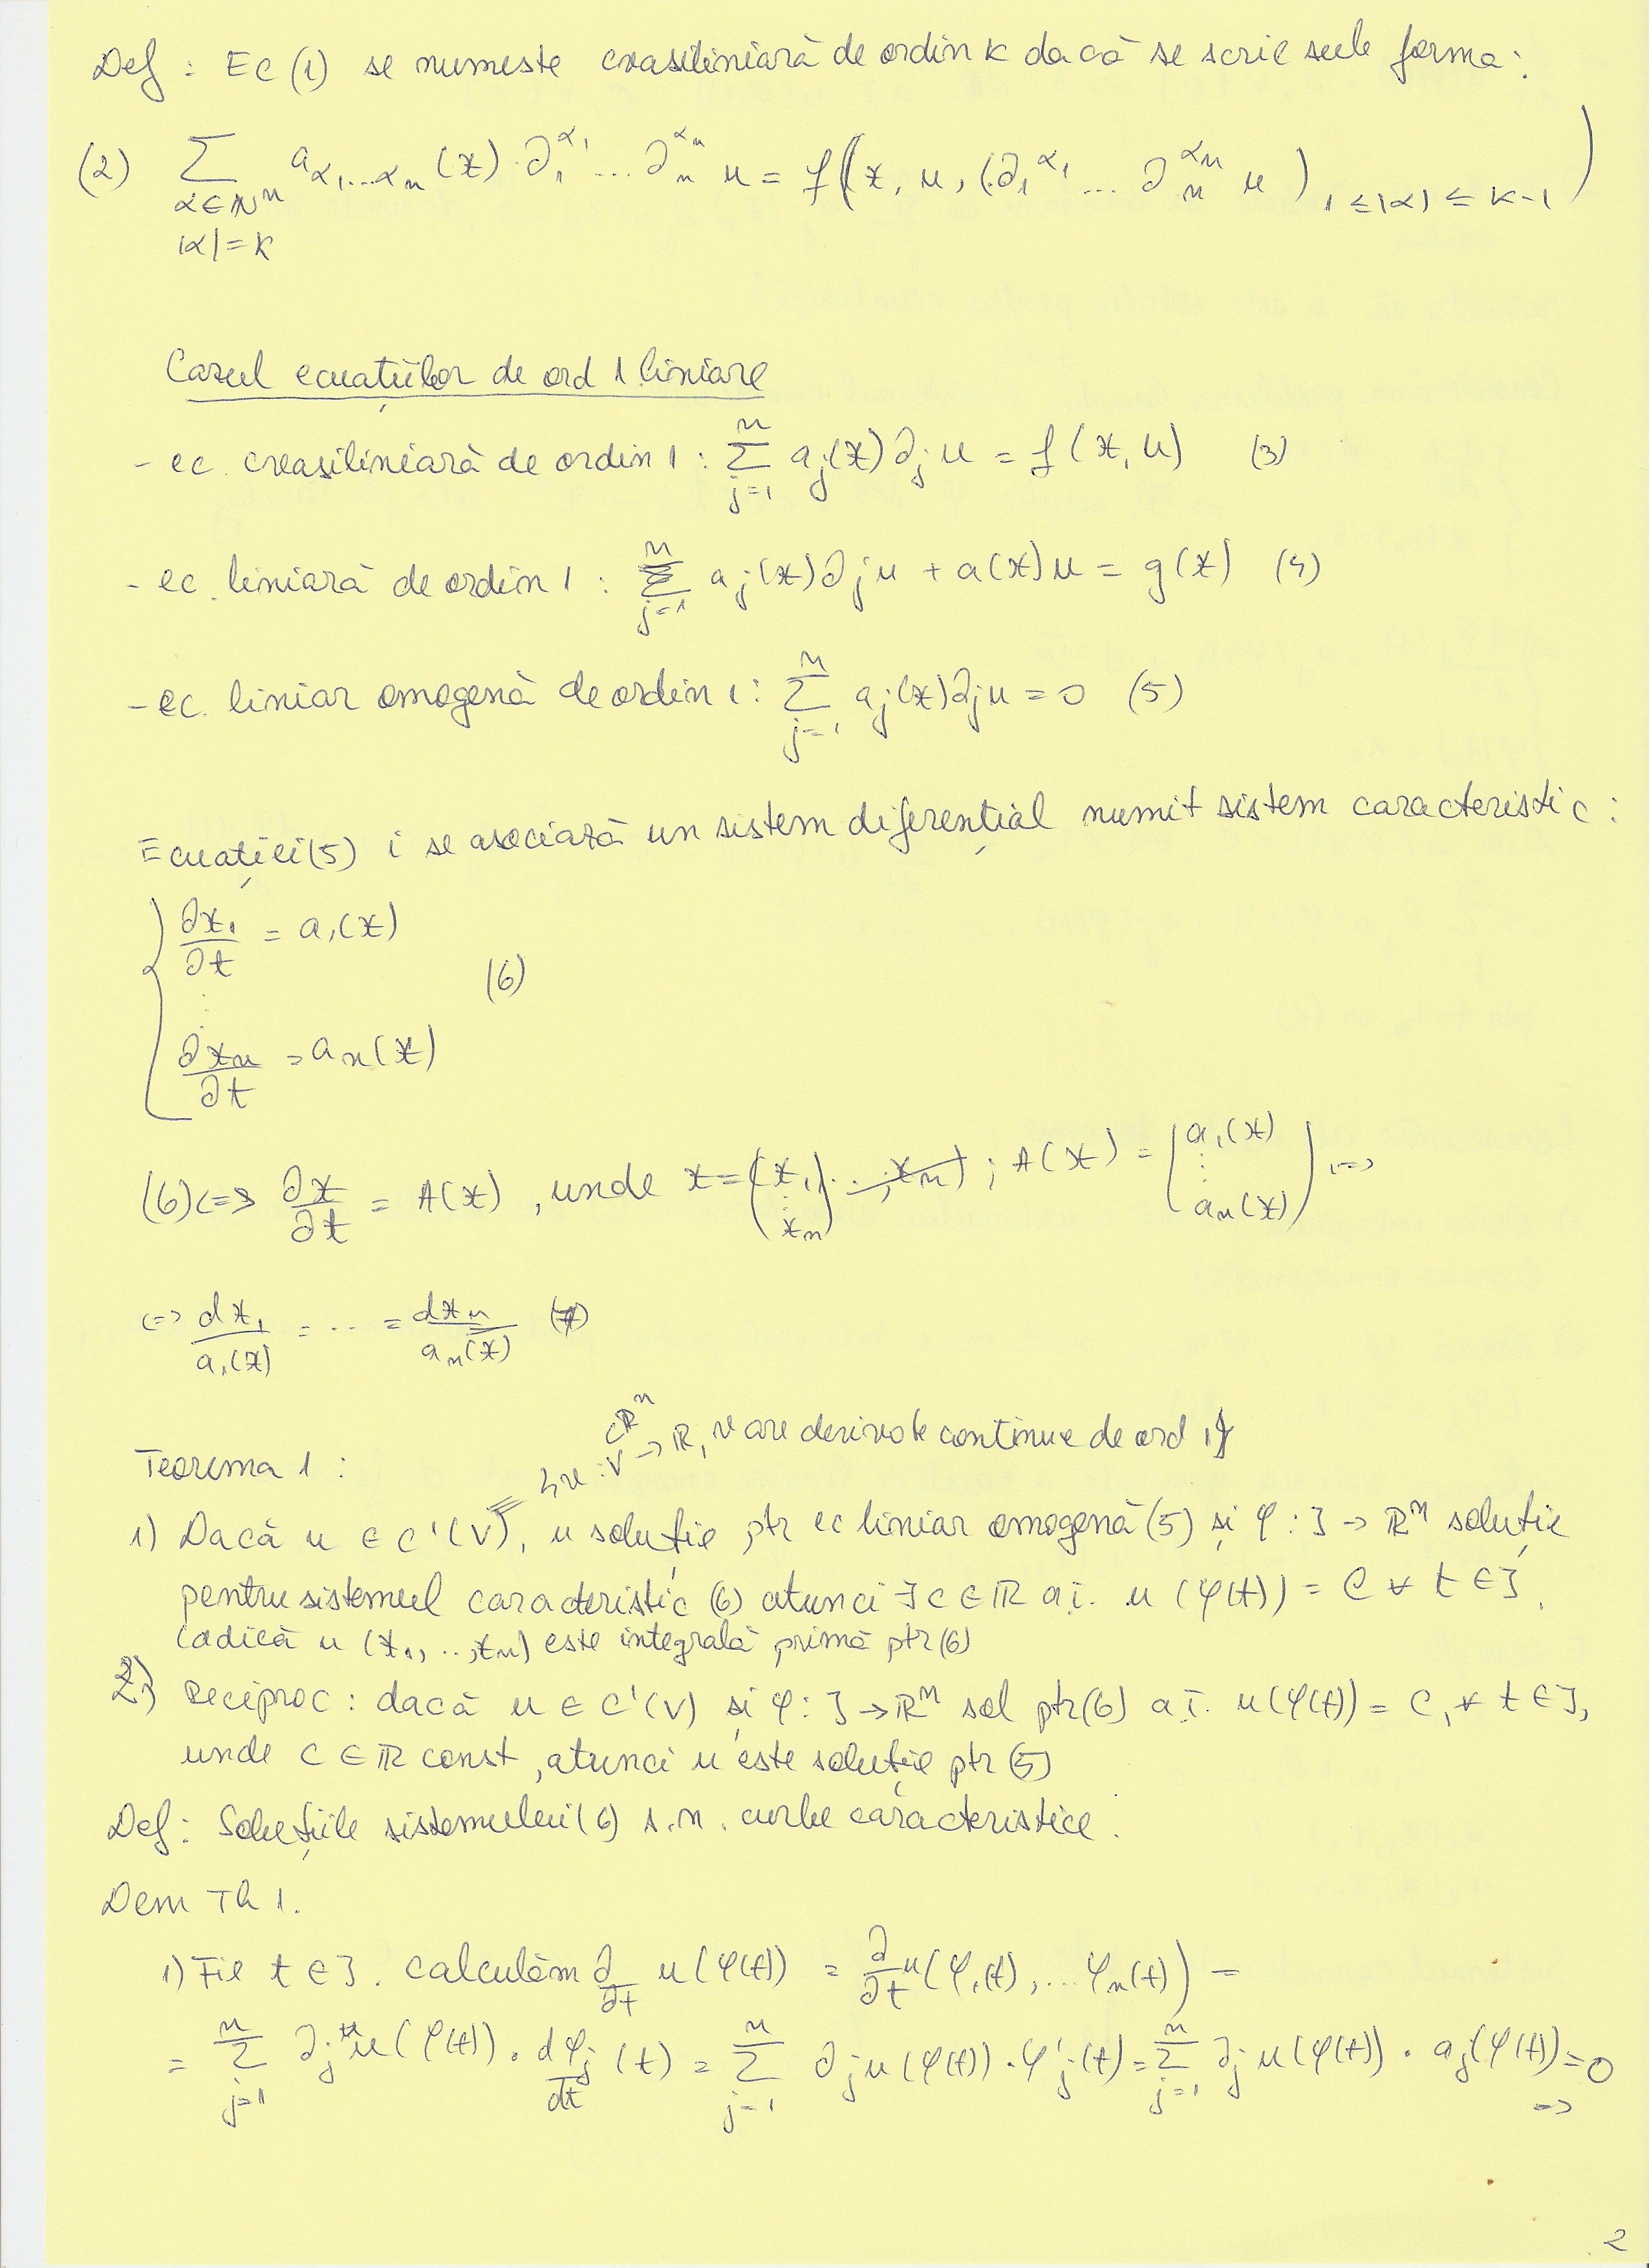 Def : Ec (1) se numeste cvasiliniară de ordin k dacă se scrie sub forma :
(2) ∑_{α∈ℕⁿ, |α|=k} a_{α₁...αₙ}(x) · ∂₁^{α₁} ... ∂ₙ^{αₙ} u = f(x, u, (∂₁^{α₁} ... ∂ₙ^{αₙ} u)_{1≤|α|≤k-1})
Cazul ecuațiilor de ord 1 liniare
- ec. cvasiliniară de ordin 1 : ∑_{j=1}^{n} aⱼ(x) ∂ⱼ u = f(x, u) (3)
- ec. liniară de ordin 1 : ∑_{j=1}^{n} aⱼ(x) ∂ⱼ u + a(x) u = g(x) (4)
- ec. liniar omogenă de ordin 1 : ∑_{j=1}^{n} aⱼ(x) ∂ⱼ u = 0 (5)
Ecuației (5) i se asociază un sistem diferențial numit sistem caracteristic :
{ ∂x₁/∂t = a₁(x)
⋮ (6)
∂xₙ/∂t = aₙ(x)
(6) <=> ∂x/∂t = A(x) , unde x = (x₁ ⋮ xₙ) ; A(x) = (a₁(x) ⋮ aₙ(x)) <=>
<=> dx₁/a₁(x) = .. = dxₙ/aₙ(x) (7)
Teorema 1 :
= {u : V ⊂ ℝⁿ → ℝ, u are derivate continue de ord 1}
1) Dacă u ∈ C¹(V), u soluție ptr ec liniar omogenă (5) și φ : J → ℝⁿ soluție
pentru sistemul caracteristic (6) atunci ∃ c ∈ ℝ a.î. u(φ(t)) = C ∀ t ∈ J.
(adică u (x₁, .., xₙ) este integrală primă ptr (6)
2) Reciproc : dacă u ∈ C¹(V) și φ : J → ℝⁿ sol ptr (6) a.î. u(φ(t)) = C, ∀ t ∈ J,
unde C ∈ ℝ const, atunci u este soluție ptr (5)
Def : Soluțiile sistemului (6) s.n. curbe caracteristice.
Dem Th 1.
1) Fie t ∈ J. Calculăm ∂/∂t u(φ(t)) = ∂/∂t u(φ₁(t), ... φₙ(t)) =
= ∑_{j=1}^{n} ∂ⱼ u(φ(t)) · dφⱼ/dt (t) = ∑_{j=1}^{n} ∂ⱼ u(φ(t)) · φ'ⱼ(t) = ∑_{j=1}^{n} ∂ⱼ u(φ(t)) · aⱼ(φ(t)) = 0
=>
2